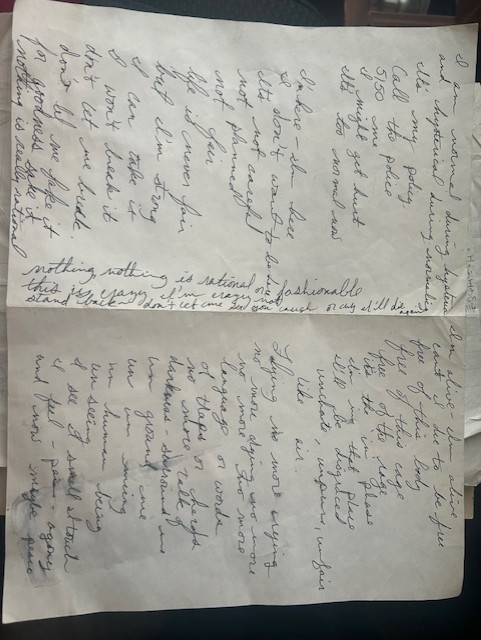 I am normal during hysteria
and hysterical during normality
It's my policy
Call the police
5150 me
I might get hurt
It's too normal now
I'm here - I'm here
I don't want to be
It's not careful
not planned
not fair
life is never fair
but I'm strong
I can take it
I won't break it
don't let me break
don't let me fake it
for goodness sake it
nothing is really rational
nothing nothing is rational or fashionable
this is crazy I'm crazy not
stand back don't let me see you laugh or cry I'll die again
I'm alive I'm alive
can't I die to be free
free of this body
free of this cage
free of the rage
it's the in phase
I'm in that place
I'll be disgraced
unchaste, unpure, unfair
like air.
Flying no more crying
no more dying no more
no more no more
language or words
of traps or
no more talk of
darkness underground us
un ground me
un seeing
un human being
un seeing
I see I smell I touch
I feel - pain - agony
and now maybe peace